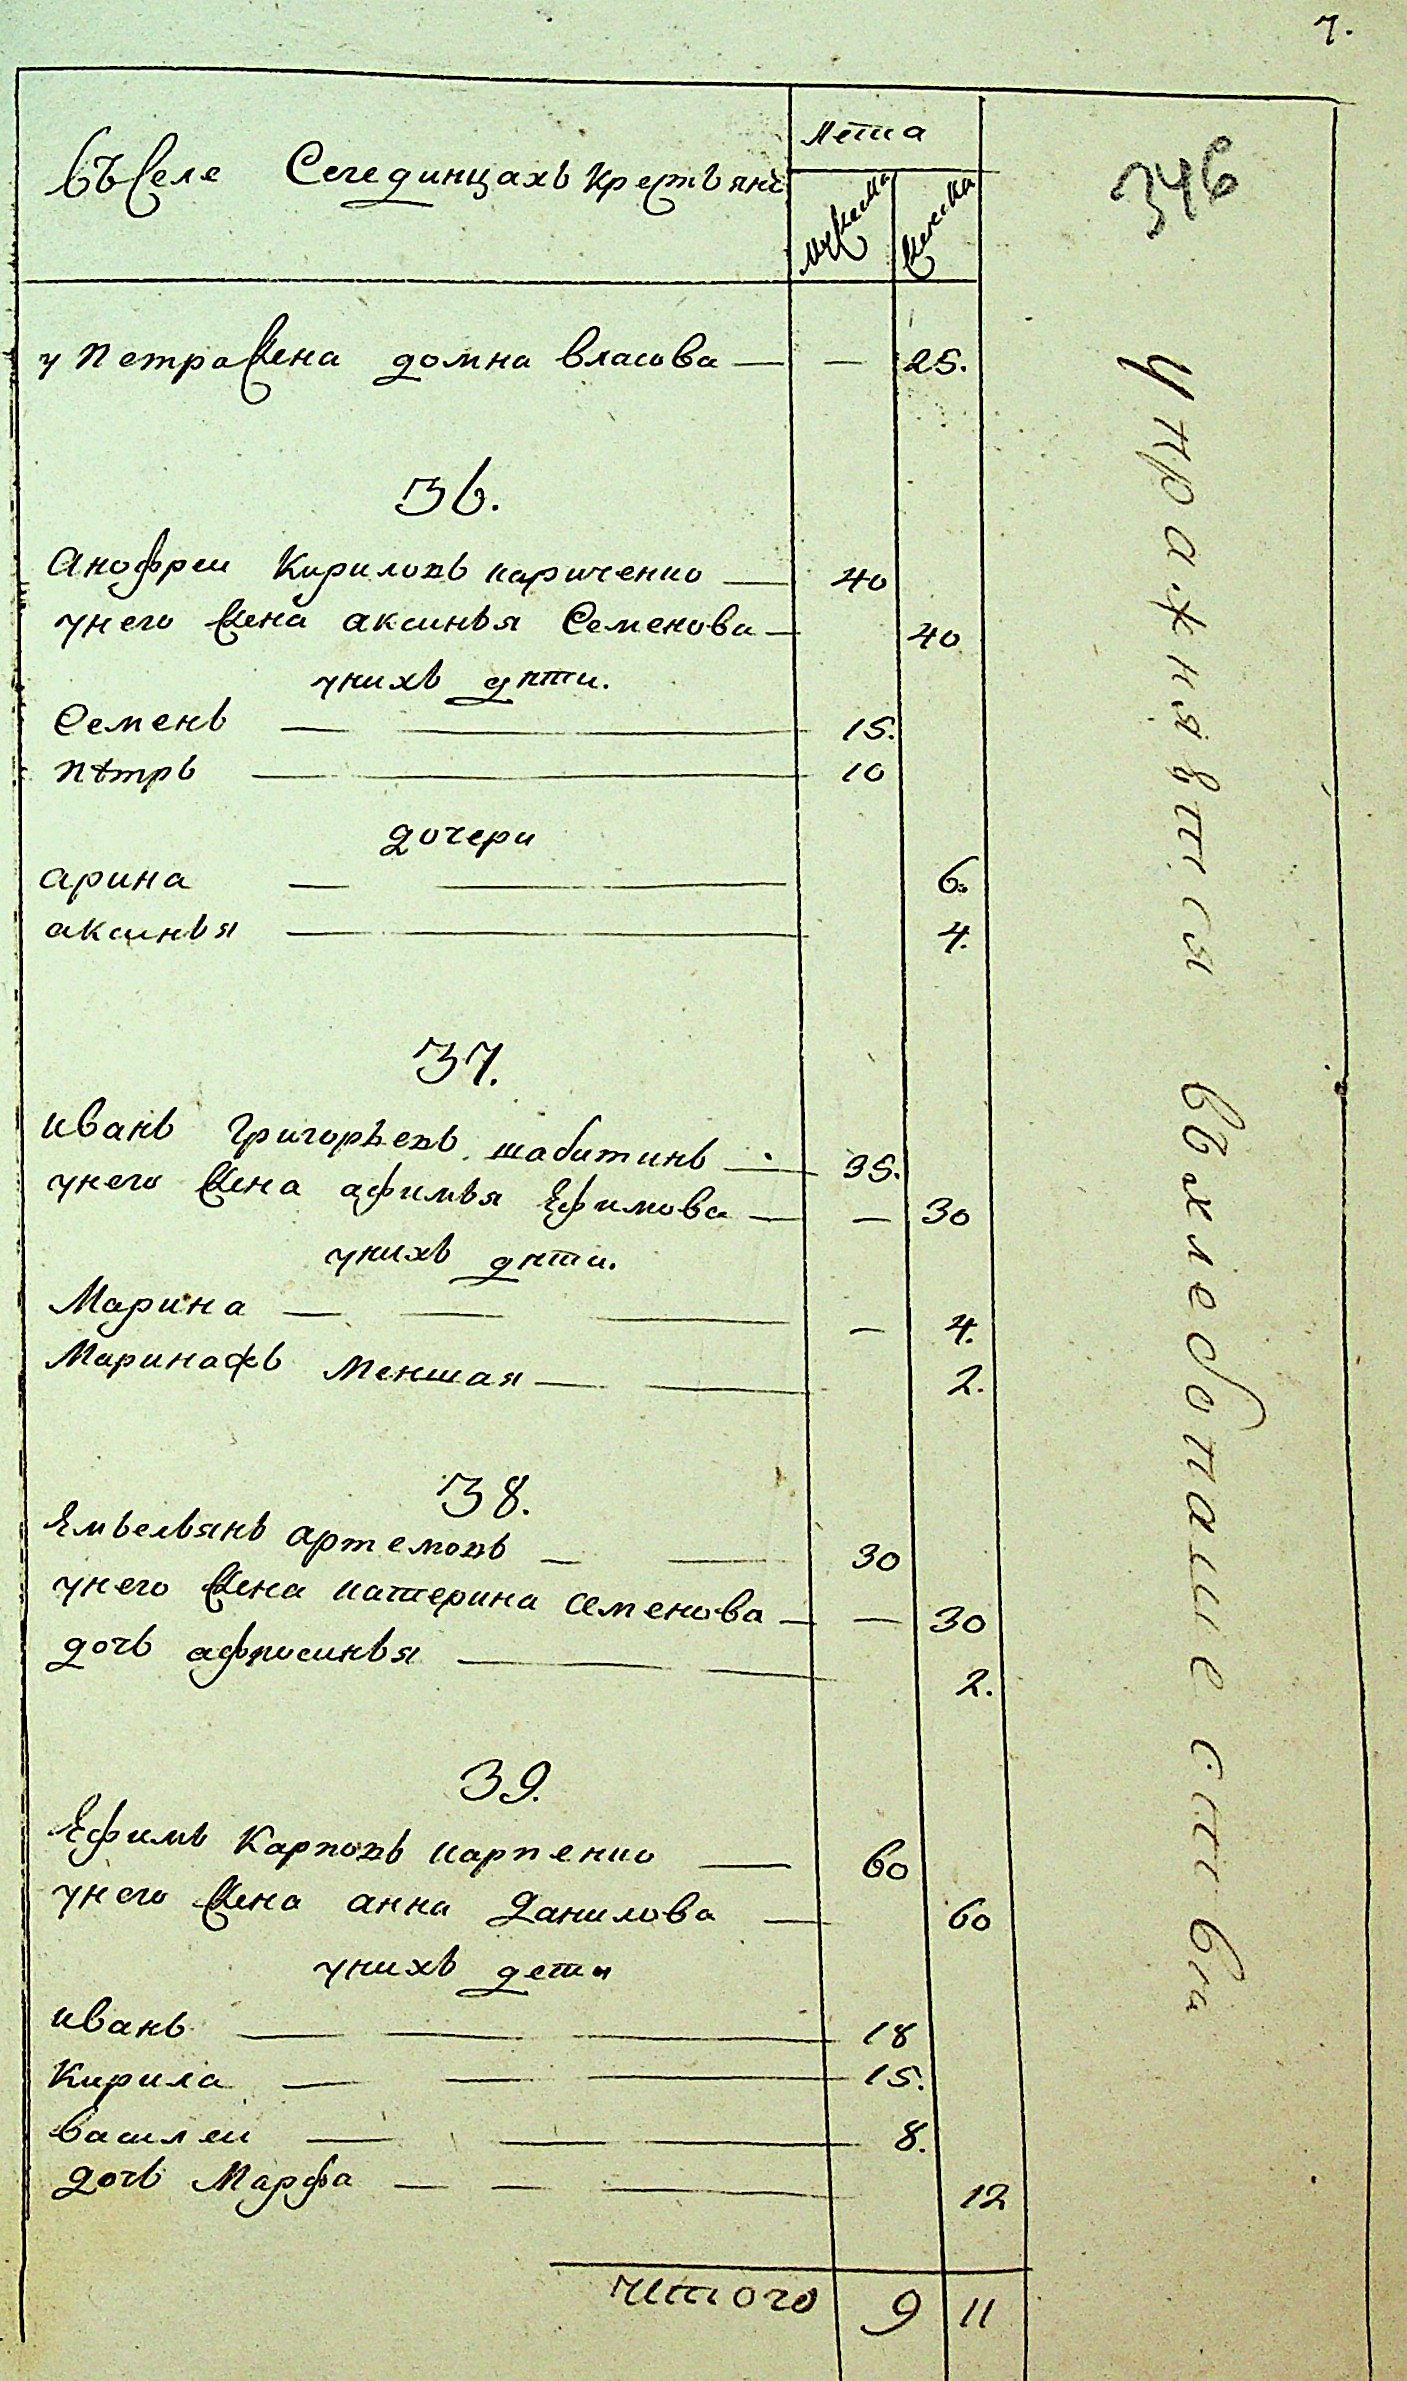 7.
въ селе Сегединцахъ крестьянъ
Лета
мужеска
женска
346
у петра жена домна власова — — 25.
36.
Анофреи Кириловъ кириченко — 40
у него жена аксинья Семенова — 40
у нихъ дѣти.
Семенъ — — 15.
пѣтръ — 10
дочери
арина — — 6.
аксинья — 4.
37.
иванъ Григорьевъ шабитинъ — 35.
у него жена афимья Ефимова — — 30
у нихъ дѣти.
Марина — — — — 4.
Маринажъ меншая — — 2.
38.
Емъельянъ артемовъ — — 30
у него жена катерина семенова — — 30
дочь афросинья — — 2.
39.
Ефимъ Карповъ карпенко — 60
у него жена анна Данилова — 60
у нихъ дети
иванъ — — — 18
Кирила — — — 15.
василеи — — — 8.
дочь Марфа — — — 12
итого 9 11
упражняются въ хлебопашества